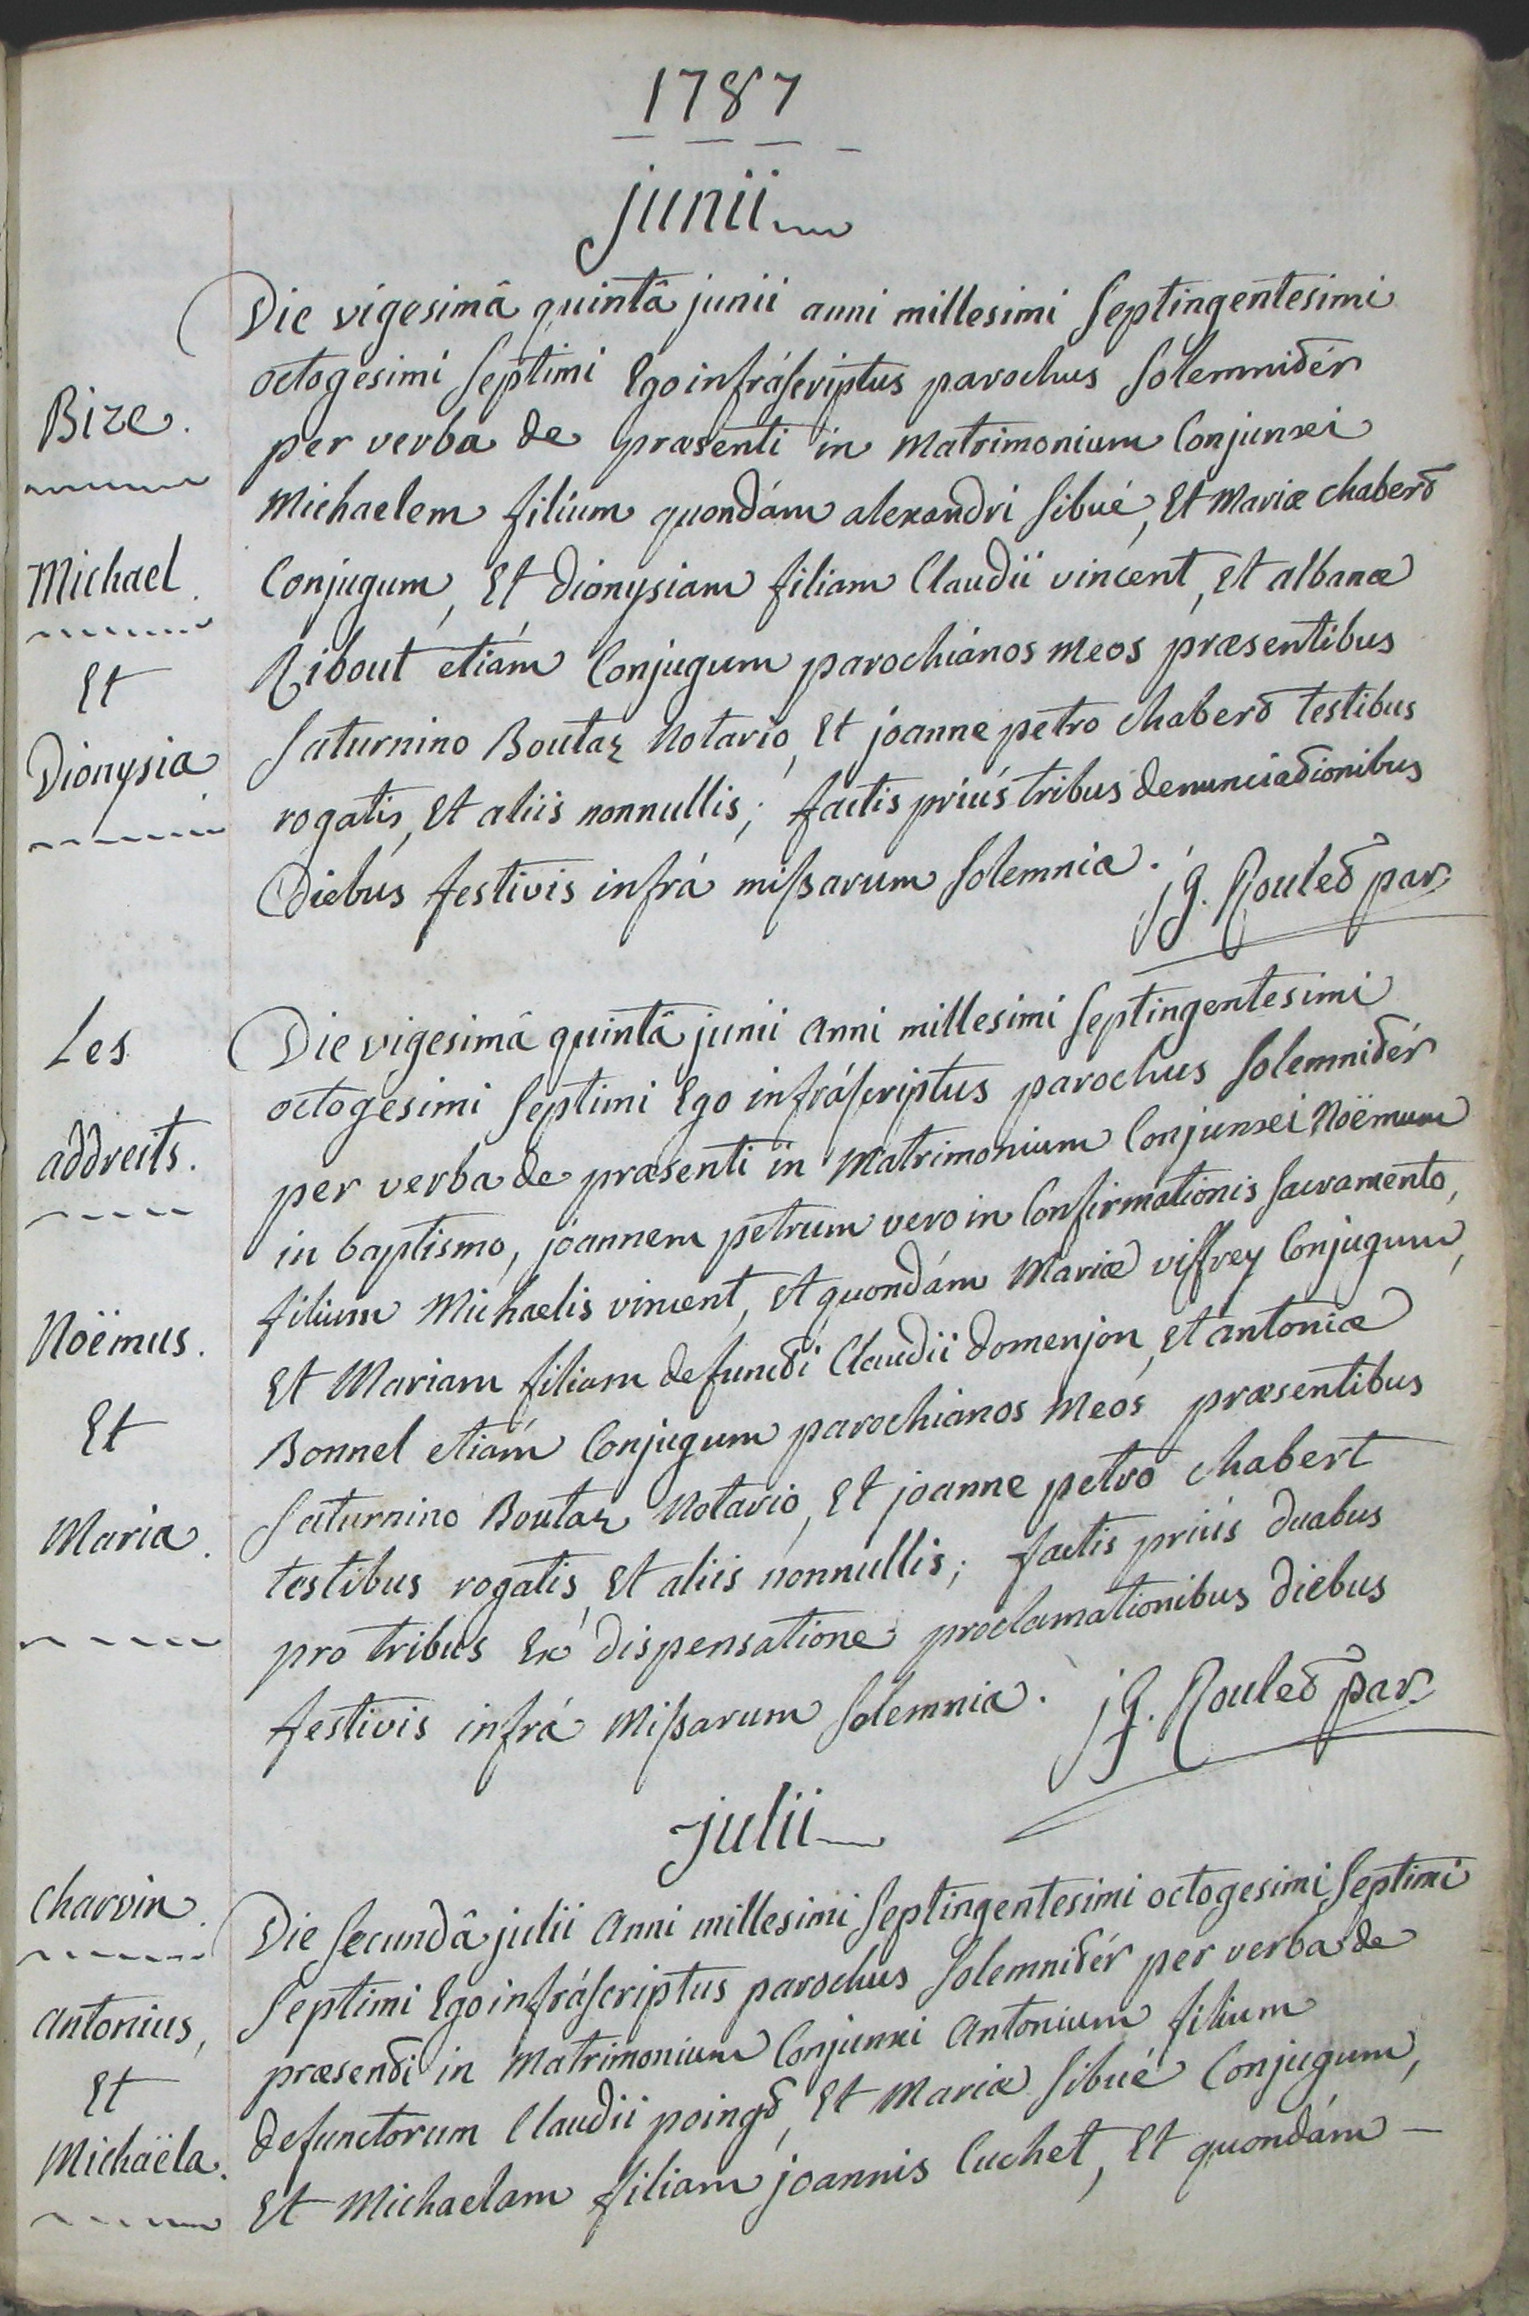 1787
junii
Die vigesimâ quintâ junii anni millesimi septingentesimi
octogesimi septimi Ego infráscriptus parochus solemnitér
Bize.
per verba de præsenti in Matrimonium Conjunxi
Michaelem filium quondám alexandri sibué, Et Mariæ chabert
Michael.
Conjugum, Et Dionysiam filiam Claudii vincent, Et albanæ
Et
Ribout etiám Conjugum parochianos meos præsentibus
Dionysia
Saturnino Boutaz Notario, Et joanne petro chabert testibus
rogatis, Et aliis nonnullis; factis priús tribus denunciationibus
Diebus festivis infrá missarum solemnia. jG. Roulet par
Les
Die vigesimâ quintâ junii anni millesimi septingentesimi
octogesimi septimi Ego infráscriptus parochus solemnitér
addreits.
per verba de præsenti in Matrimonium Conjunxi Noëmum
in baptismo, joannem petrum vero in Confirmationis sacramento,
filium Michaelis vincent, Et quondám Mariæ viffrey Conjugum,
Noëmus.
Et Mariam filiam defuncti Claudii domenjon, Et antoniæ
Et
Bonnel etiám Conjugum parochianos meos præsentibus
Saturnino Boutaz Notario, Et joanne petro chabert
Maria.
testibus rogatis, Et aliis nonnullis; factis priús duabus
pro tribus Ex dispensatione proclamationibus diebus
festivis infrá Missarum solemnia. jG. Roulet par
julii
Charvin.
Die secundâ julii Anni millesimi septingentesimi octogesimi septimi
septimi Ego infráscriptus parochus solemnitér per verba de
Antonius,
præsenti in Matrimonium Conjunxi Antonium filium
Et
defunctorum Claudii poingt, Et Mariæ sibué Conjugum,
Michaëla.
Et Michaelam filiam joannis Cuchet, Et quondám